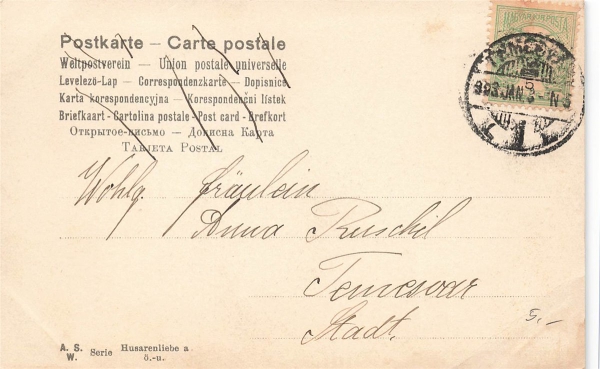 MAGYAR KIR. POSTA
Postkarte – Carte postale
Weltpostverein – Union postale universelle
Levelező-Lap – Correspondenzkarte – Dopisnice
Karta korespondencyjna – Korespondenční lístek
Briefkaart - Cartolina postale - Post card - Brefkort
Открытое-письмо – Дописна Карта
Tarjeta Postal
Wohlg. Fräulein
Anna Ruschil
Temesvar
Stadt.
5.–
A. S. W. Serie Husarenliebe a ö.-u.